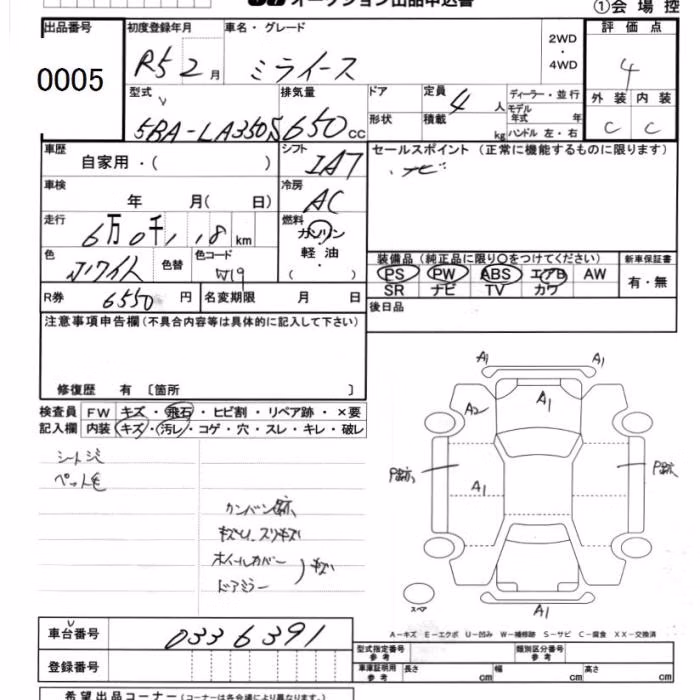 オークション出品申込書
①会場控
出品番号 0005
初度登録年月 R5 2月
車名・グレード ミライース
2WD・4WD
評価点 4
外装 C 内装 C
型式 5BA-LA350S
排気量 650cc
ドア形状
定員 4人
積載 kg
ディーラー・並行
モデル年式 年
ハンドル 左・右
車歴 自家用・( )
シフト IAT
セールスポイント (正常に機能するものに限ります)
ナビ
車検 年 月( 日)
冷房 AC
走行 6万0千, 18km
燃料 ガソリン・軽油・( )
色 色替 色コード W19
装備品(純正品に限り○をつけてください)
PS PW ABS エアB AW
SR ナビ TV カワ
新車保証書 有・無
R券 6550円
名変期限 月 日
後日品
注意事項申告欄(不具合内容等は具体的に記入して下さい)
修復歴 有〔箇所 〕
検査員記入欄
FW キズ・飛石・ヒビ割・リペア跡・×要
内装 キズ・汚レ・コゲ・穴・スレ・キレ・破レ
シートシミ
ペット毛
カンバン跡
ホイールカバー
ドアミラー
キズ
A1 A1
A1
A2
P跡 P跡
A1
A1
スペア
A-キズ E-エクボ U-凹み W-補修跡 S-サビ C-腐食 XX-交換済
車台番号 0336391
登録番号
型式指定番号 参考
類別区分番号 参考
車庫証明用 参考 長さ cm 幅 cm 高さ cm
希望出品コーナー(コーナーは各会場により異なります)